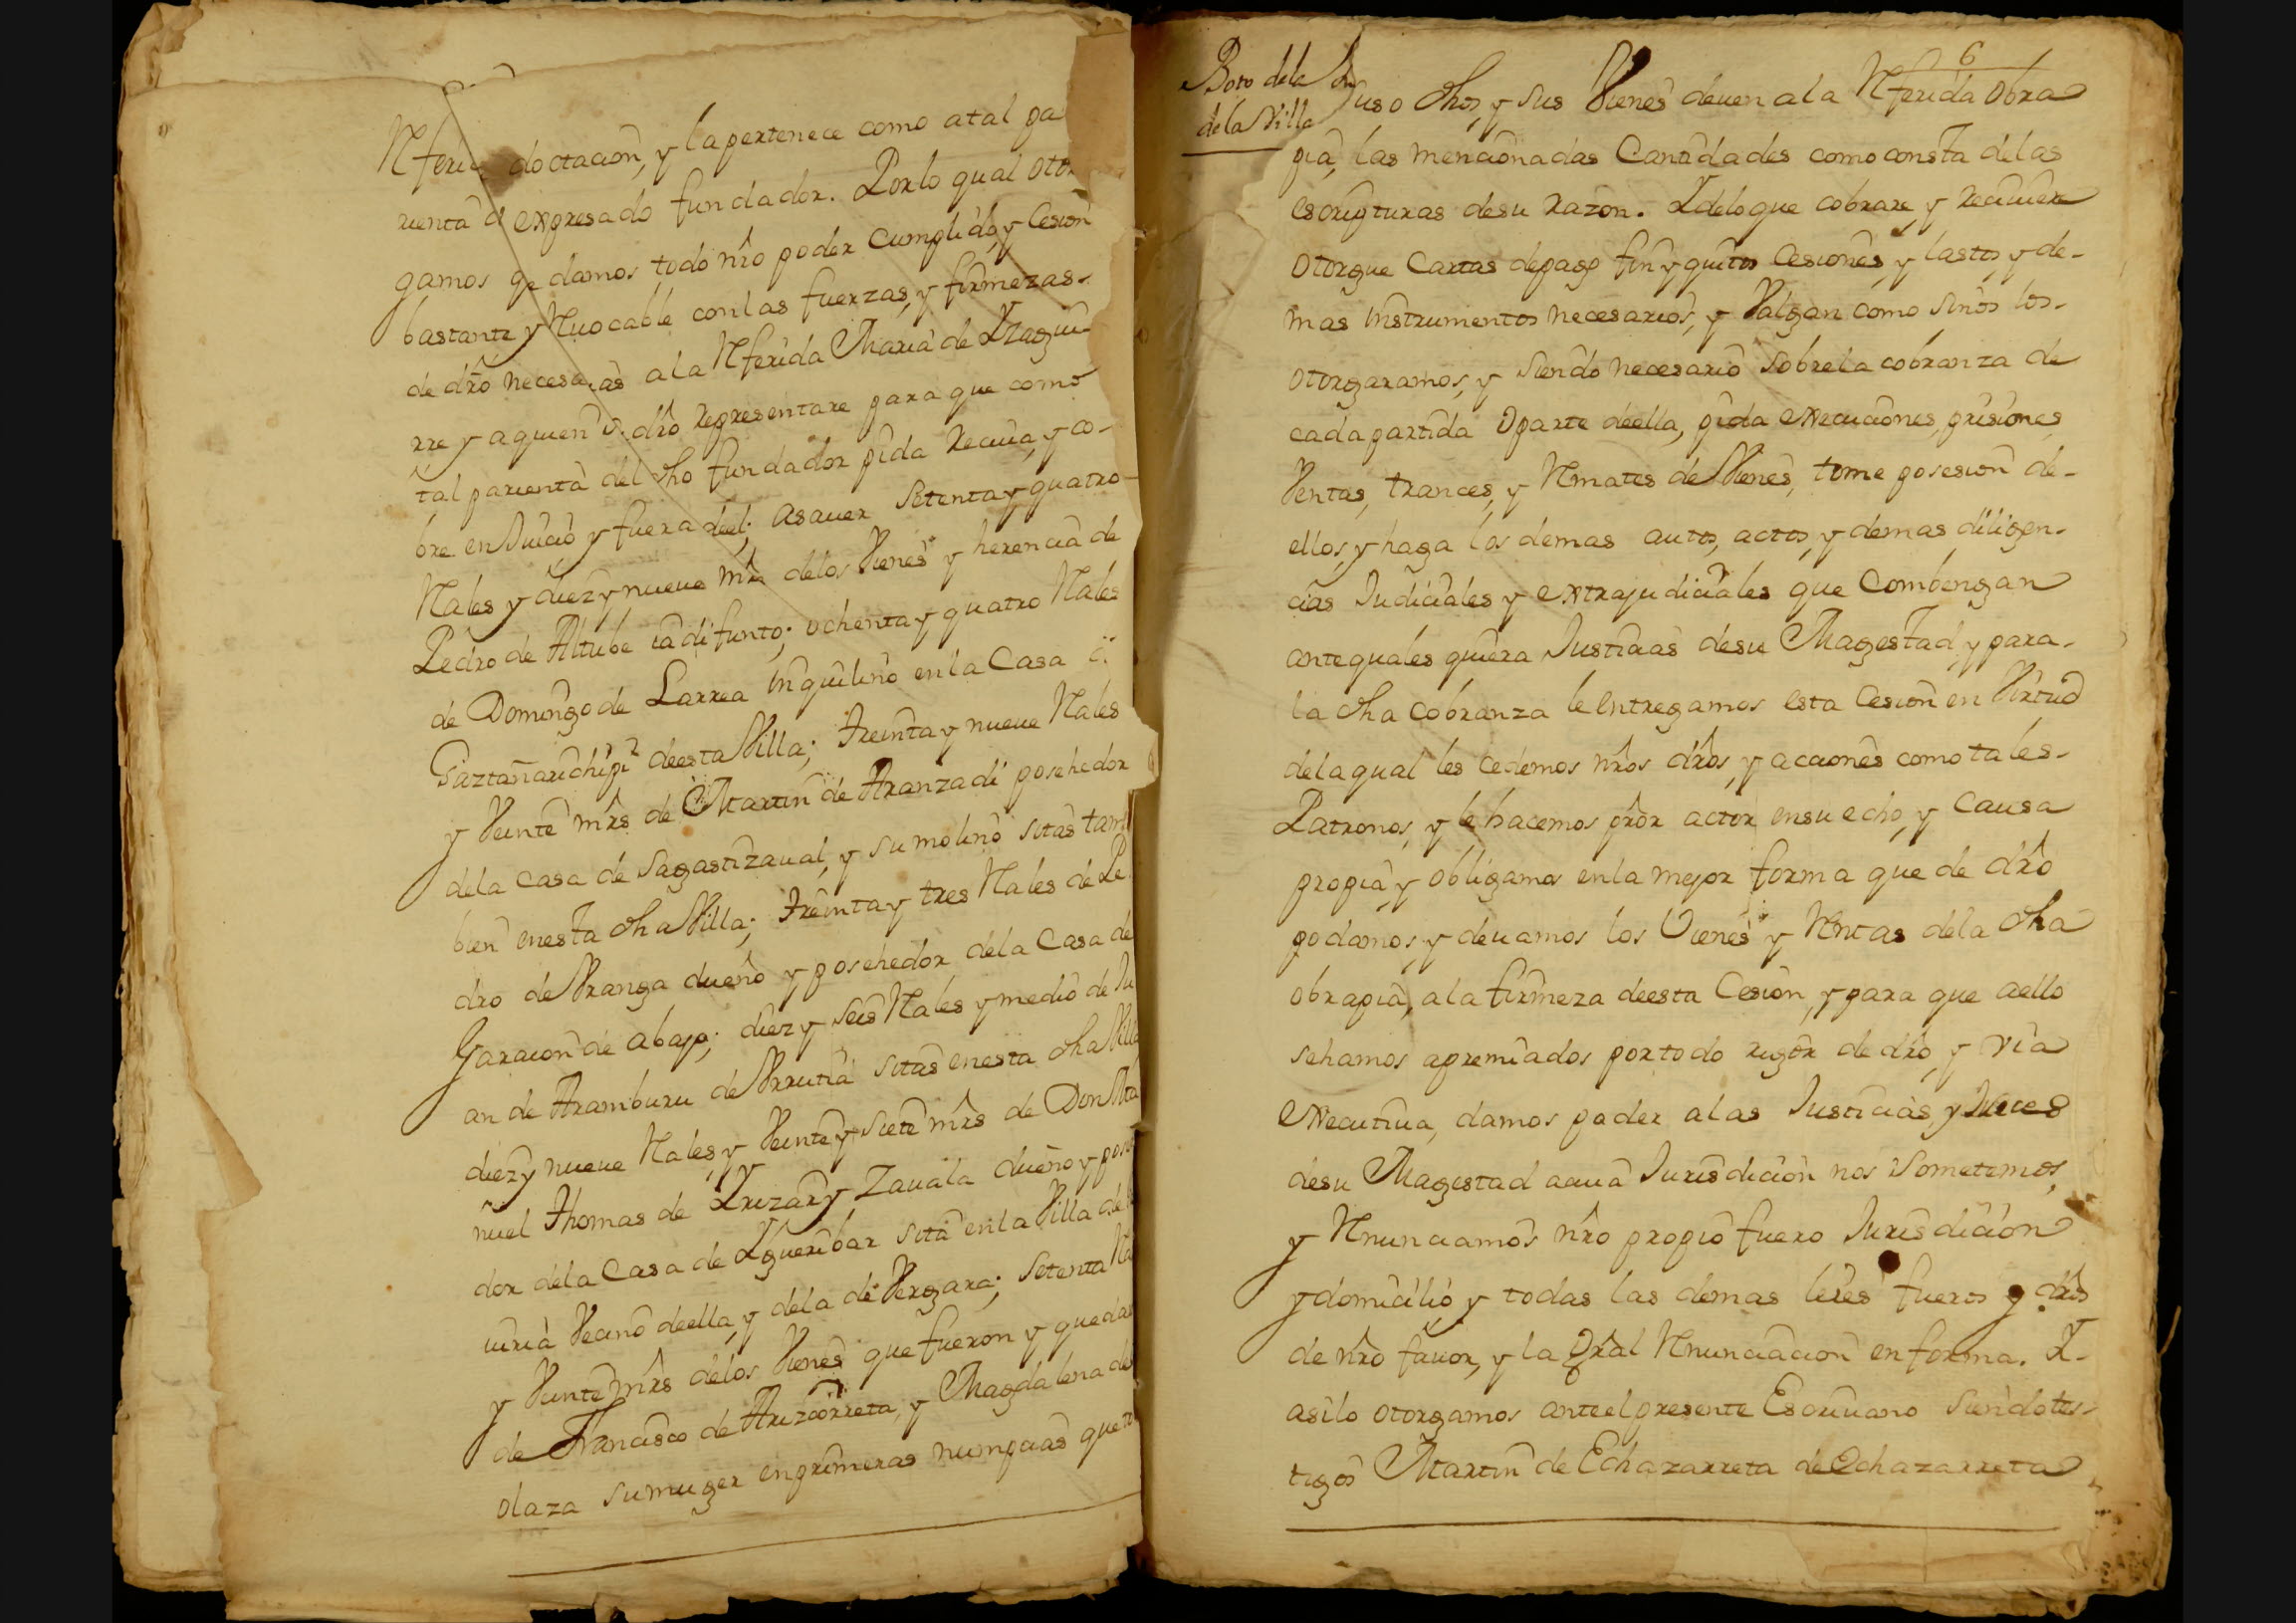 Referi doctacion, y la pertenece como a tal pa
rienta expresado fundador. Por lo qual otor
gamos qe damos todo nrõ poder cumplido, y Cesion
bastante y Reuocable con las fuerzas, y firmezas
de drõ necesarias a la Referida Maria de Yzagui
rre y a quien drõ representare para que como
tal parienta del dho fundador pida Reciua, y co-
bre en Juicio y fuera deel; asauer Setenta y quatro
Rales y diez y nueue mrs delos Vienes y herencia de
Pedro de Altube ia difunto; ochenta y quatro Rales
de Domingo de Larrea inquilino en la Casa
Gaztañarichipi deesta Villa; treinta y nueue Rales
y Veinte mrs de Martin de Aranzadi posehedor
dela casa de Sagastizaual, y su molino sitas tam
bien enesta dha Villa; treinta y tres Rales de Pe
dro de Vranga dueño y posehedor dela Casa de
Garaicon de abajo; diez y seis Rales y medio de Ju
an de Aramburu de Vrrutia sitas enesta dha Villa
diez y nueue Rales, y Veinte y siete mrs de Don Ma
nuel Thomas de Yrizar y Zauala dueño y pose
dor dela Casa de Ygueribar sita en la Villa de
uiria Vecino deella, y dela de Vergara; Setenta Ra
y Veinte mrs delos Vienes que fueron y quedar
de Francisco de Arizcorreta, y Magdalena de
olaza su muger en primeras numpcias que
Boto dela
dela Villa
6
Suso dhos, y sus Vienes deuen a la Referida obra
pia, las mencionadas Cantidades como consta delas
escrипturas desu razon. Y delo que cobrare, y reciuiere
otorgue Cartas depago fin y quitos Cesiones, y lastos, y de-
mas instrumentos necesarios, y Valgan como sinos los-
otorgaramos, y siendo necesario sobre la cobranza de
cada partida o parte deella, pida execuciones, prisiones
Ventas, trances, y Remates de Vienes, tome posesion de-
ellos, y haga los demas autos, actos, y demas diligen-
cias Judiciales y extrajudiciales que Combengan
ante quales quiera Justicias desu Magestad, y para-
la dha Cobranza le entregamos esta Cesion en Virtud
dela qual les cedemos nrõs drõs, y acciones como tales-
Patronos, y le hacemos prõr actor ensu echo, y Causa
propia, y obligamos en la mejor forma que de drõ
podamos, y deuamos los Vienes y Rentas dela dha
obrapia, a la firmeza deesta Cesion, y para que aello
sehamos apremiados por todo rigor de drõ, y via
executiua, damos poder alas Justicias, y Jueces
desu Magestad acuia Jurisdicion nos Sometemos,
y Renunciamos nrõ propio fuero Jurisdicion
y domicilio y todas las demas leies fueros y drõs
de nrõ fauor, y la Gral Renunciacion en forma. Y-
asilo otorgamos ante el presente Escriuano siendo tes-
tigos Martin de Echazarreta de Echazarreta